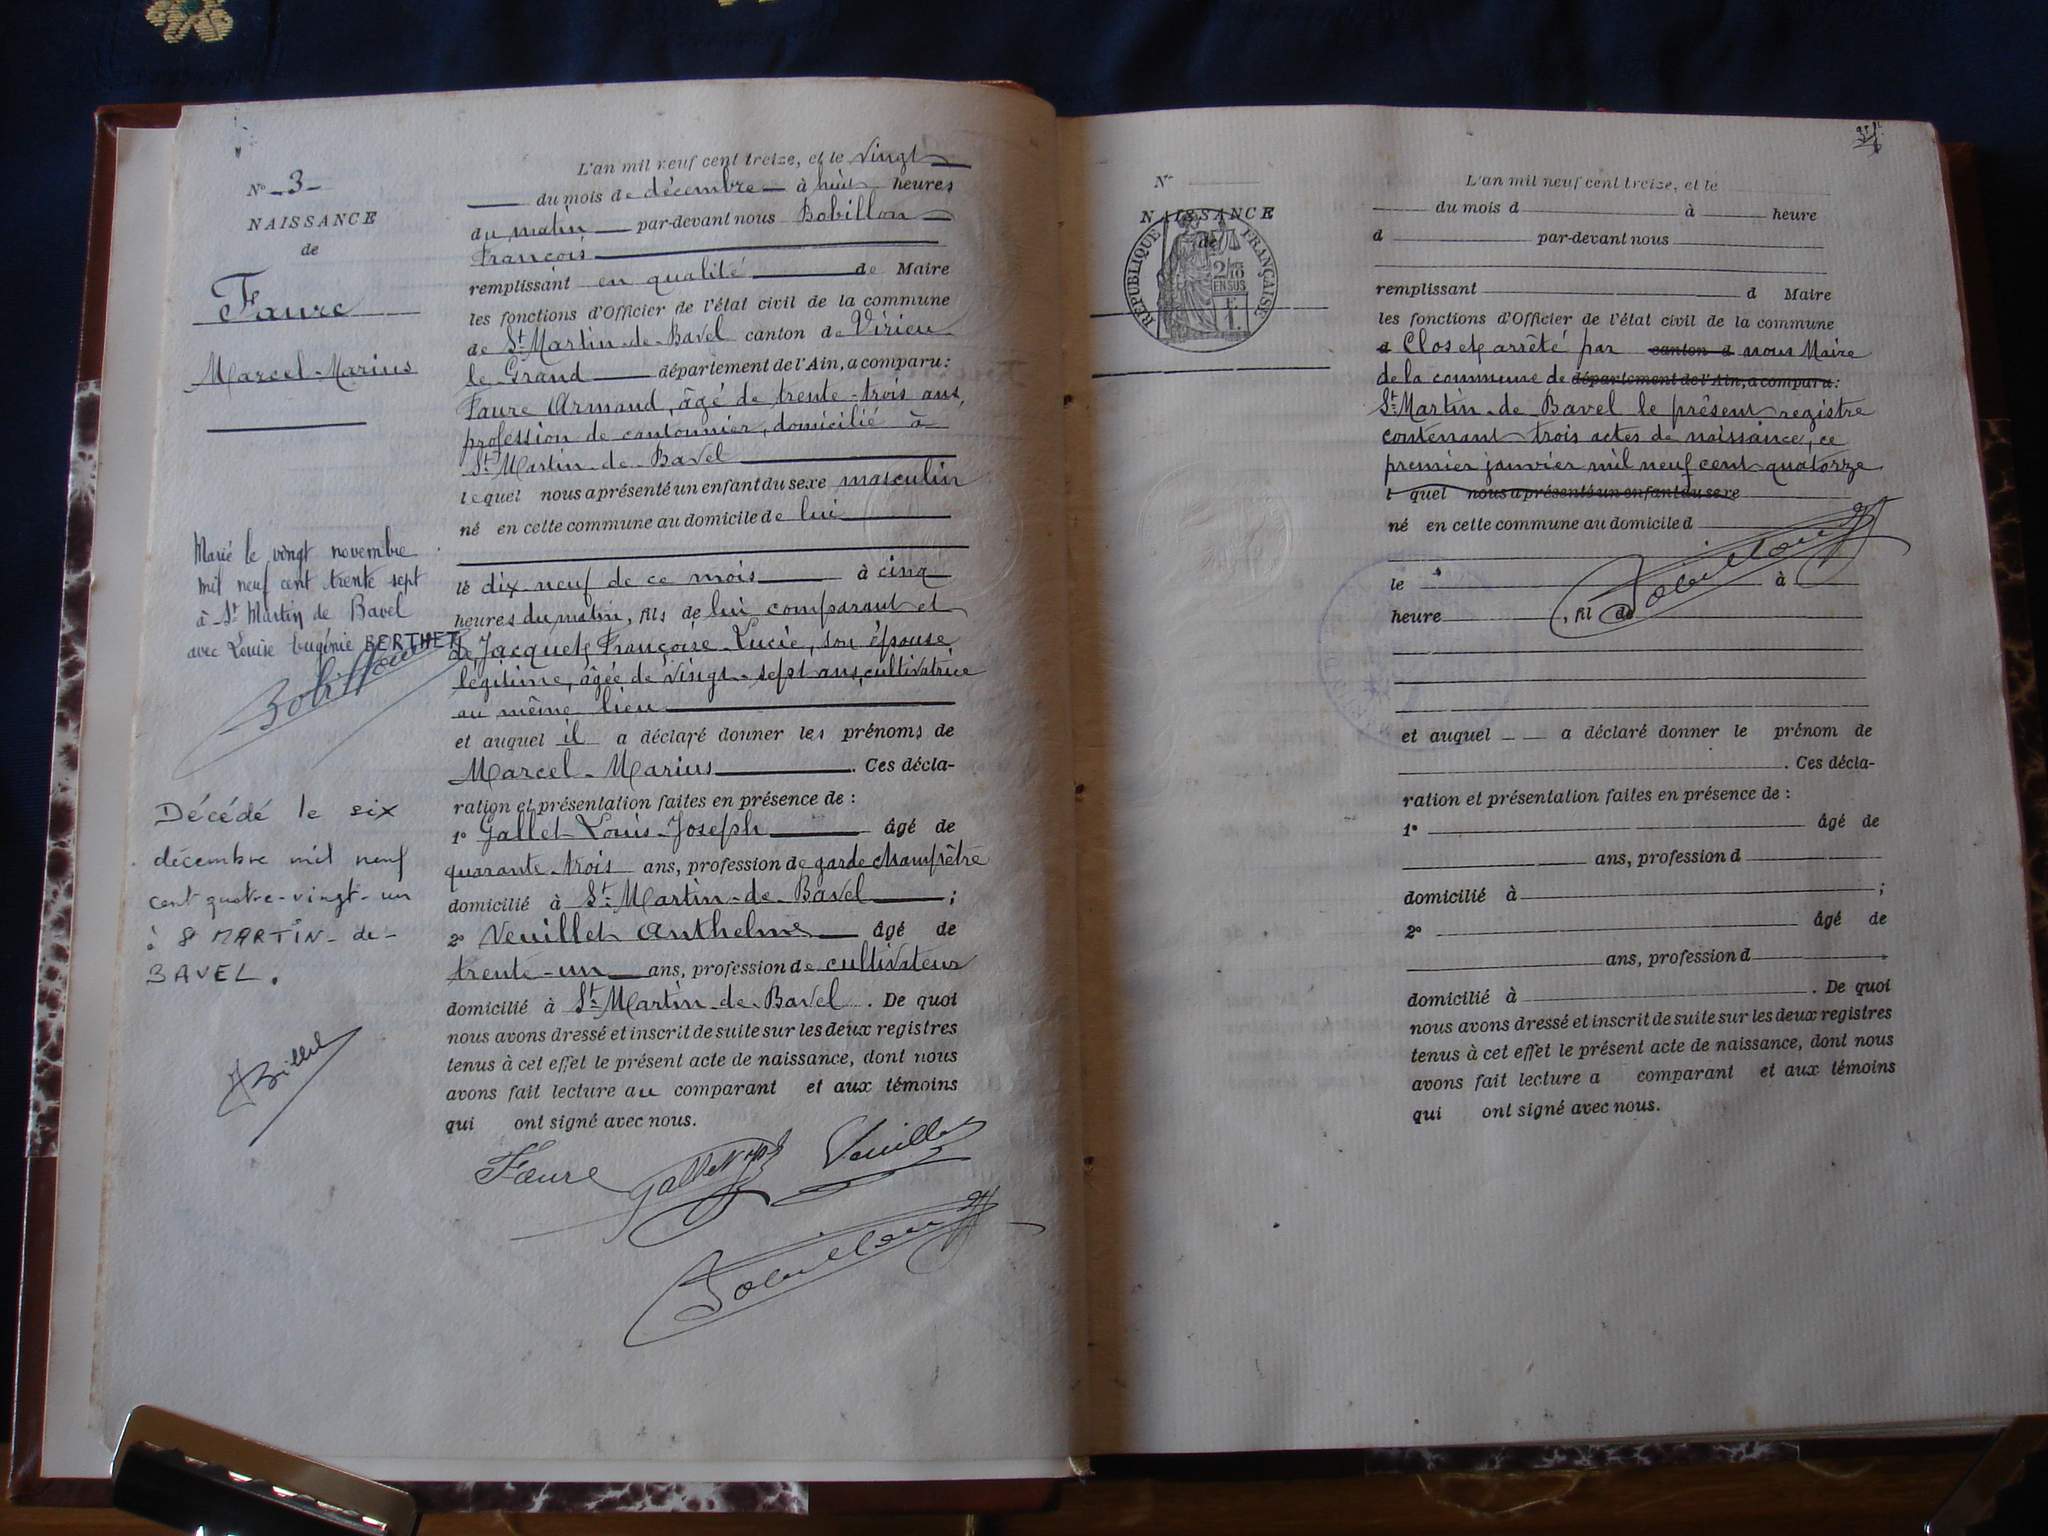 N° 3
NAISSANCE
de
Faure
Marcel-Marius
Marié le vingt novembre
mil neuf cent trente sept
à St Martin de Bavel
avec Louise Eugénie BERTHET
Bobillon
Décédé le six
décembre mil neuf
cent quatre-vingt-un
à St MARTIN-de-
BAVEL.
L'an mil neuf cent treize, et le vingt
du mois de décembre à huit heures
du matin par-devant nous Bobillon
François
remplissant en qualité de Maire
les fonctions d'Officier de l'état civil de la commune
de St Martin-de-Bavel canton de Virieu
le Grand département de l'Ain, a comparu:
Faure Armand, âgé de trente-trois ans,
profession de cantonnier, domicilié à
St Martin-de-Bavel
lequel nous a présenté un enfant du sexe masculin
né en cette commune au domicile de lui
le dix-neuf de ce mois à cinq
heures du matin, fils de lui comparant et
de Jacquet Françoise Lucie, son épouse
légitime, âgée de vingt-sept ans, cultivatrice
au même lieu
et auquel il a déclaré donner les prénoms de
Marcel-Marius. Ces décla-
ration et présentation faites en présence de :
1° Gallet Louis-Joseph âgé de
quarante-trois ans, profession de garde champêtre
domicilié à St Martin-de-Bavel ;
2° Veuillet Anthelme âgé de
trente-un ans, profession de cultivateur
domicilié à St Martin-de-Bavel. De quoi
nous avons dressé et inscrit de suite sur les deux registres
tenus à cet effet le présent acte de naissance, dont nous
avons fait lecture au comparant et aux témoins
qui ont signé avec nous.
Faure Gallet Veuillet
Bobillon
N°
NAISSANCE
de
RÉPUBLIQUE FRANÇAISE
2/10
EN SUS
L'an mil neuf cent treize, et le
du mois d à heure
d par-devant nous
remplissant d Maire
les fonctions d'Officier de l'état civil de la commune
d Clos et arrêté par canton d nous Maire
de la commune de département de l'Ain, a comparu:
St Martin-de-Bavel le présent registre
contenant trois actes de naissance, ce
premier janvier mil neuf cent quatorze
l quel nous a présenté un enfant du sexe
né en cette commune au domicile d
Bobillon
le à
heure , fil de
et auquel a déclaré donner le prénom de
. Ces décla-
ration et présentation faites en présence de :
1° âgé de
ans, profession d
domicilié à ;
2° âgé de
ans, profession d
domicilié à . De quoi
nous avons dressé et inscrit de suite sur les deux registres
tenus à cet effet le présent acte de naissance, dont nous
avons fait lecture a comparant et aux témoins
qui ont signé avec nous.